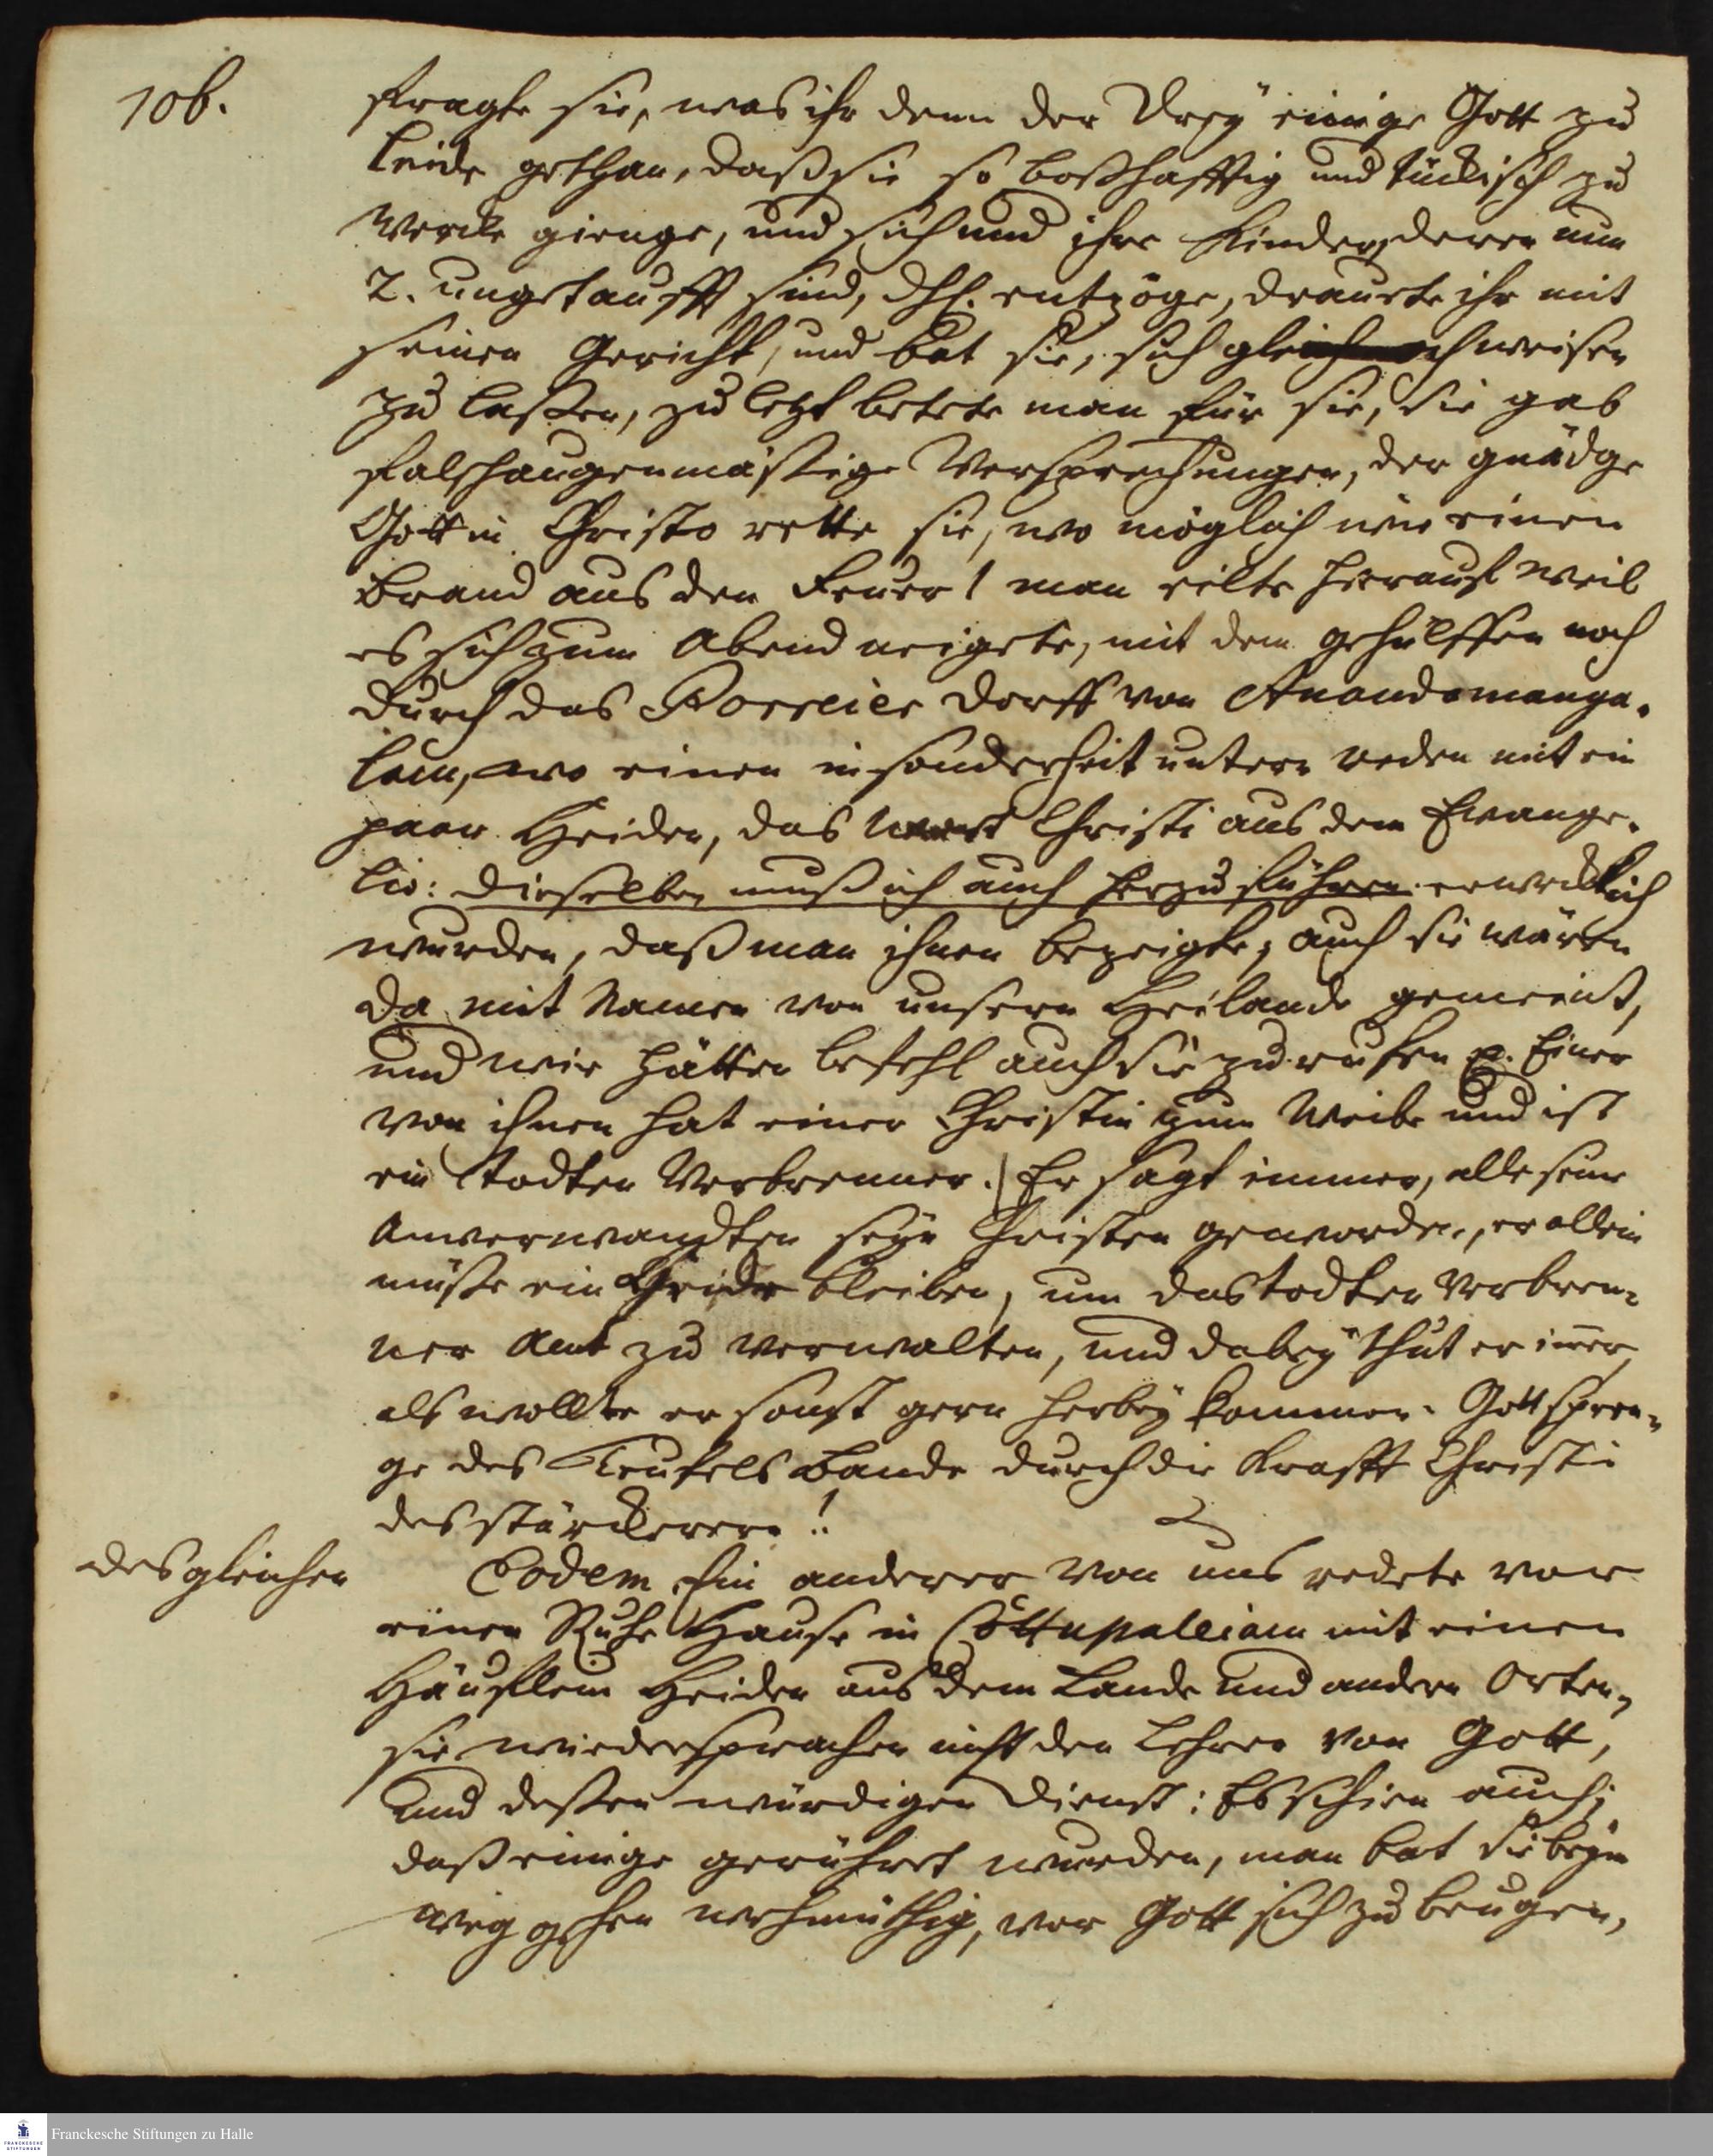 106.
fragte sie, was ihr denn der Drey einige Gott zu
Leide gethan, daß sie so boßhafftig und tückisch zu
Wercke gienge, und sich und ihre Kinder, deren nun
2. ungetaufft sind, Ihm entzöge, dräuete ihr mit
seinen Gericht, und bat sie, sich gleich weisen
zu laßen, zu letzt betete man für sie, sie gab
falschaugenmäßige Versprechungen, der gnädge
Gott in Christo rette sie, wo möglich wie einen
Brand aus den Feuer! man eilte hierauf weil
es sich zum Abend neigete, mit dem gehülffen noch
durch das Porreier Dorff von Anandamanga-
lam, wo einen insonderheit unterm reden mit ein
paar Heiden, das Wort Christi aus dem Evange-
lio: Dieselben muß ich auch herzu führen. erwecklich
wurden, daß man ihnen bezeigte, auch sie wären
da mit Namen von unserm Heilande gemeint,
und wir hätten befehl auch sie zu rufen p. Einer
von ihnen hat einer Christin zum Weibe und ist
ein Todten Verbrenner. Er sagt immer, alle seine
Anverwandten seyn Christen geworden, er allein
müße ein Heide bleiben, um das todten Verbren-
ner Amt zu verwalten, und dabey thut er imer,
als wollte er sonst gern herbey kommen. Gott spren-
ge des Teufels Bande durch die Krafft Christi
des stärckeren!
desgleichen
Eodem Ein anderer von uns redete vor
einen Ruhe Hause in Cöttupaleiam mit einen
Häuflein Heiden aus dem Lande und andern Orten,
sie wiedersprachen nicht den Lehren von Gott,
und deßen würdigen Dienst: Es schien auch,
daß einige gerühret wurden, man bat sie beym
weg gehen wehmüthig, vor Gott sich zu beugen,
Franckesche Stiftungen zu Halle
FRANCKESCHE
STIFTUNGEN